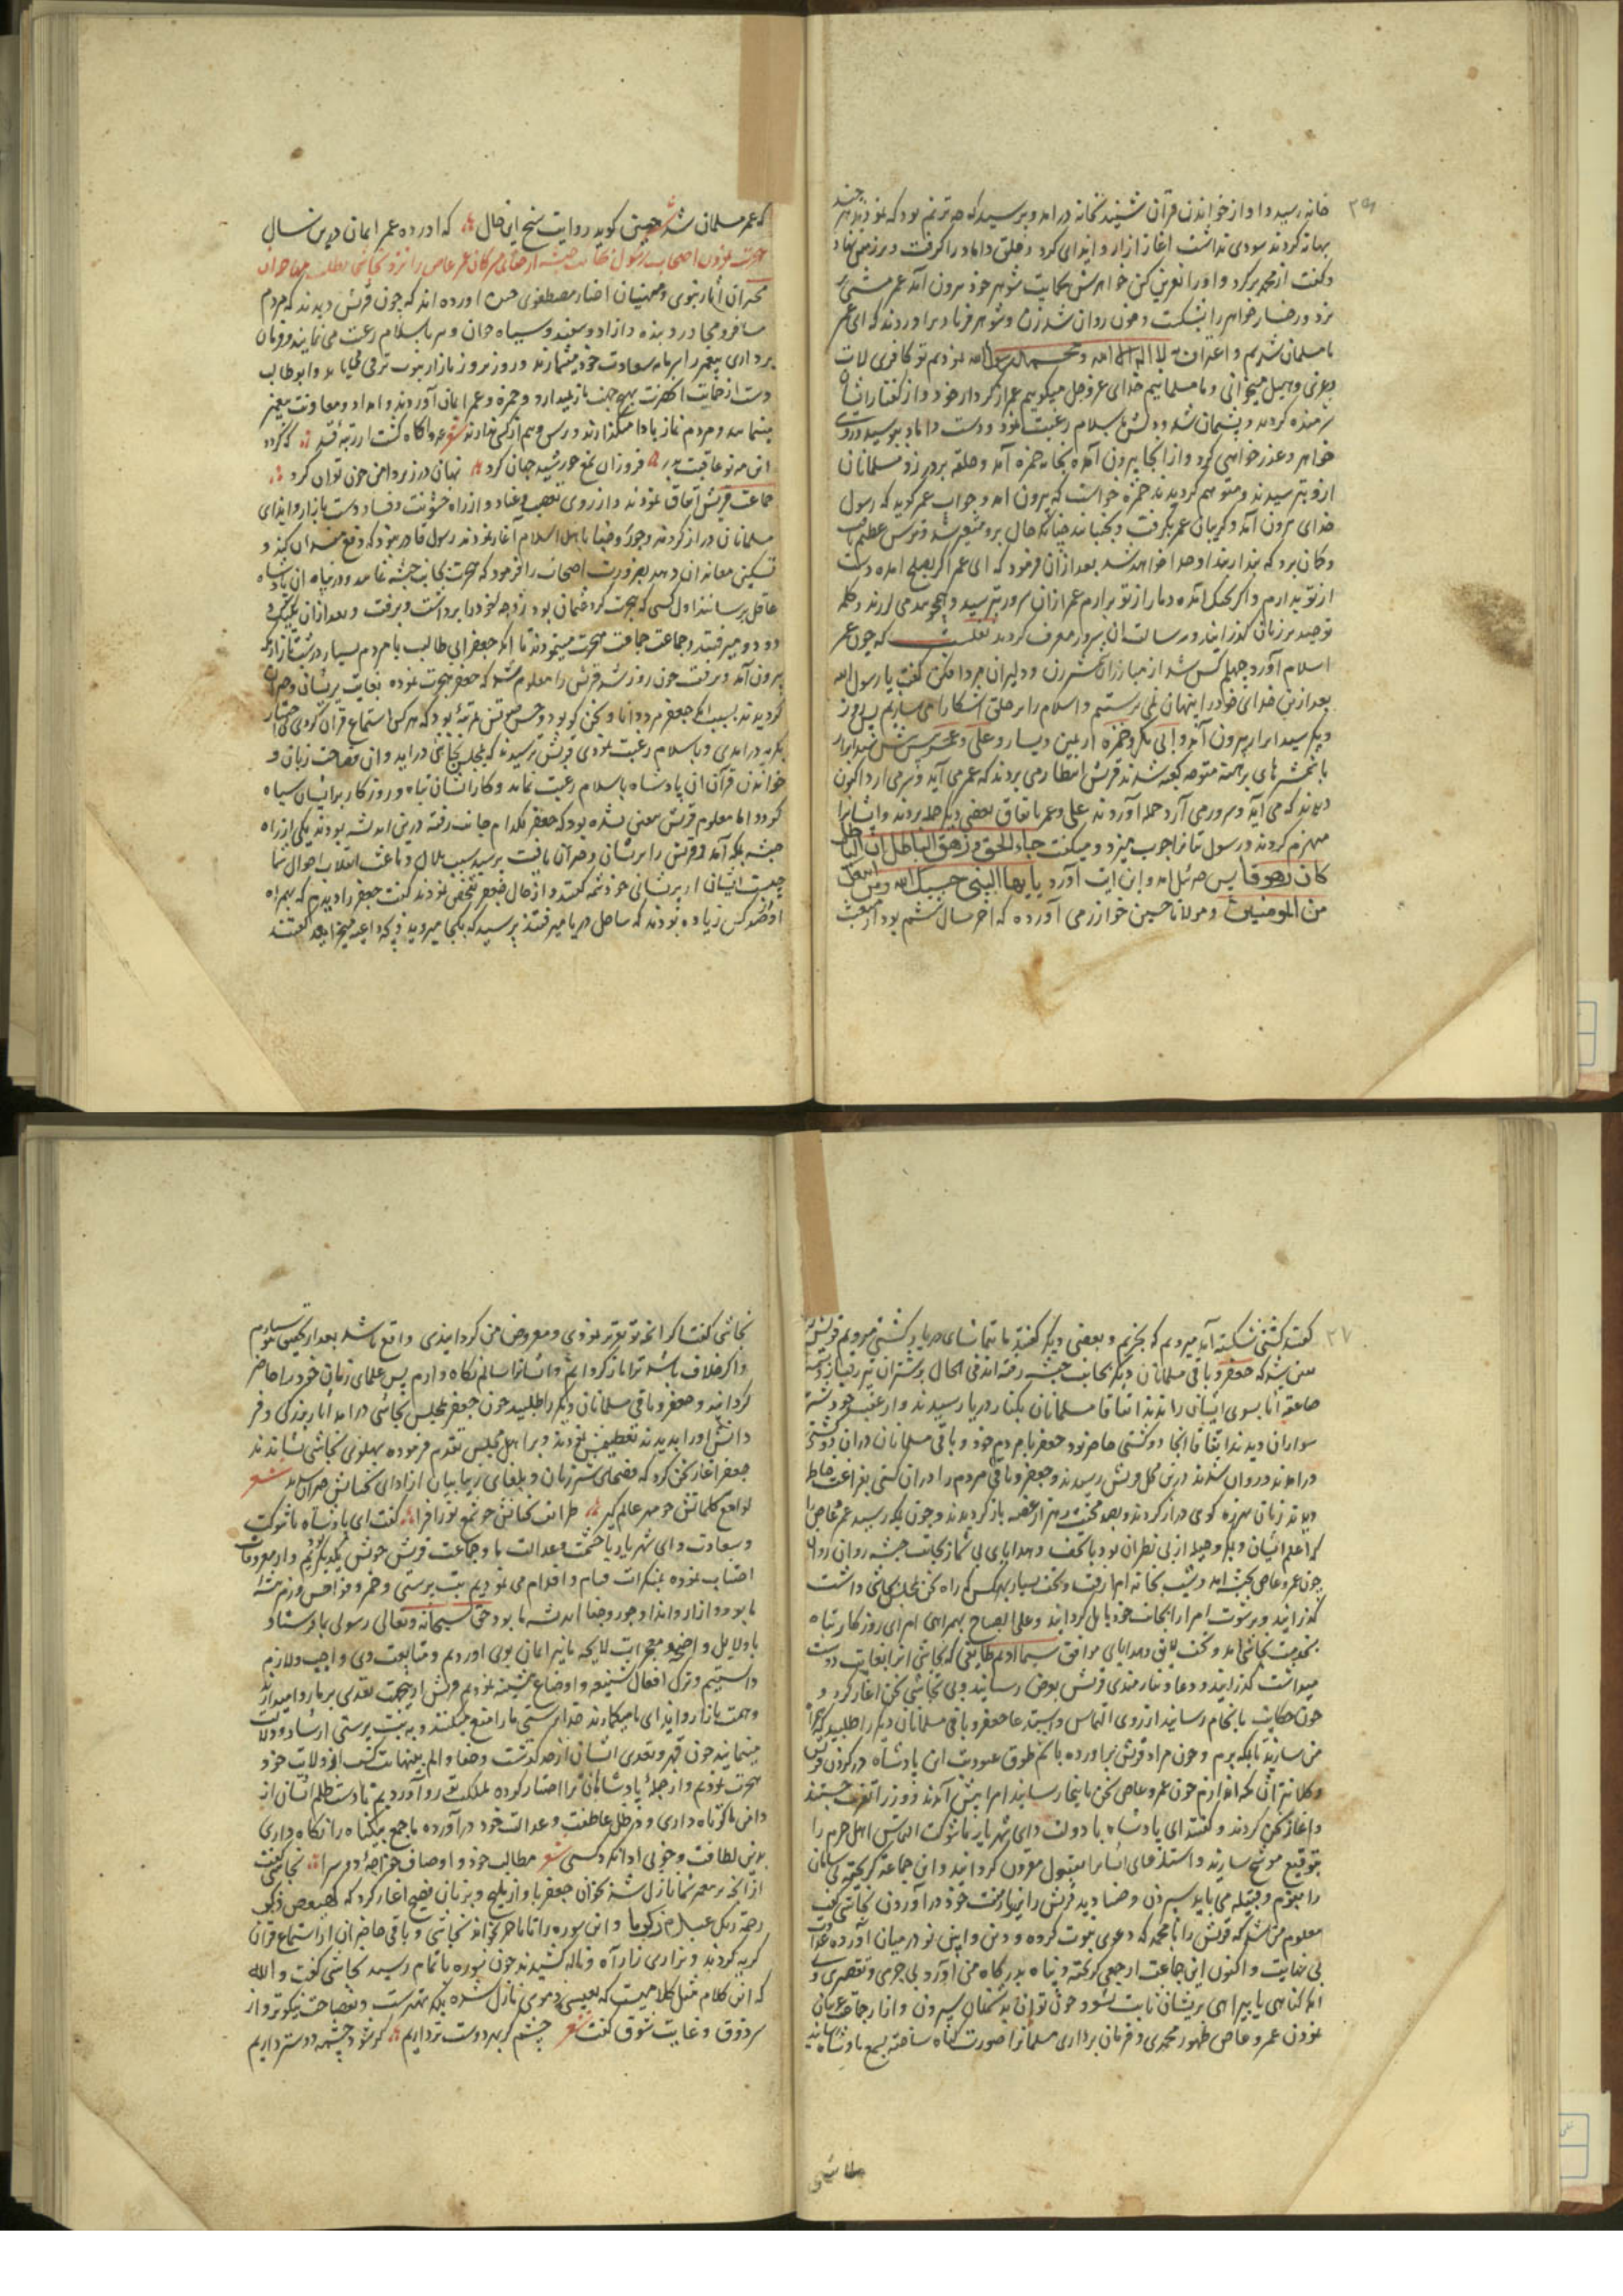 ۳۶
خانه رسید و اواز خواندن قران شنید بخانه درامد و پرسید که چه ترنم بود که نمودید هر چند
بهانه کردند سودی نداشت اغاز ازار و ایذای کرد و حلق داماد را کرفت و بر زمین نهاد
و کفت از محمد برکرد و او را نفرین کن خواهرش بحمایت شوهر خود برون آمد عمر مشتی
بزد و رخسار خواهر را بشکست و خون روان شد زن و شوهر فریاد براوردند که ای عمر
ما مسلمان شدیم و اعتراف به لا اله الا الله و محمد رسول الله نمودیم تو کافری لات
و عزی و هبل میخوانی و ما مسلمانیم خدای عز و جل میکوییم عمر از کردار خود و از کفتار ایشان
شرمنده کردید و پشیمان شد و دلش باسلام رغبت نمود و دست داماد ببوسید و روی
خواهر و عذر خواهی کرد و از انجا بیرون آمده بخانه حمزه آمد و حلقه بر در زد مسلمانان
ازو بترسیدند و متوهم کردیدند حمزه خواست که بیرون اید و جواب عمر کوید که رسول
خدای برون آمد و کریبان عمر بکرفت و بجنبانید چنانکه حال برو متغیر شد و ترس عظیم یافت
و کمان برد که بند از بند او جدا خواهد شد بعد ازان فرمود که ای عمر اکر بصلح امده دست
از تو بدارم و اکر بجنک آمده دمار از تو برارم عمر ازان سرور بترسید و همچو بید می لرزید و کلمه
توحید بر زبان کذرانید و برسالت ان سرور معترف کردید نقلست که چون عمر
اسلام آورد چهلم کس شد از مبارزان لشکر زن و دلیران مردافکن کفت یا رسول الله
بعد ازین خدای خود را پنهان نمی پرستیم و اسلام را بر خلق اشکارا می سازیم پس روز
دیکر سید ابرار بیرون آمد و ابی بکر و حمزه از یمین و یسار و علی و عمر پیش پیش سید ابرار
با شمشیرهای برهنه متوجه کعبه شدند قریش انتظار می بردند که عمر می آید و سر می ارد اکنون
دیدند که می آید و سرور می آرد حمله آوردند علی و عمر باتفاق بعضی دیکر حمله بردند و ایشانرا
منهزم کردند و رسول بتانرا چوب میزد و میکفت جاء الحق و زهق الباطل ان الباطل
کان زهوقا پس جبرئیل امد و این ایت آورد یا یها النبی حسبک الله و من اتبعک
من المومنین و مولانا حسین خوارزمی آورده که اخر سال ششم بود از مبعث
که عمر مسلمان شد حسین کوید روایت سنح این حال که اورده عمر ایمان درین سال
هجرت نمودن اصحاب رسول بجانب حبشه و فرستادن مشرکان عمر عاص را نزد نجاشی بطلب مهاجران
مخبران آثار نبوی و مبینان اخبار مصطفوی چنین اورده اند که چون قریش دیدند که مردم
مسافر و مجاور و بنده و ازاد و سفید و سیاه جوان و پیر باسلام رغبت می نمایند و فرمان
برداری پیغمبر را سرمایه سعادت خود میشمارند و روز بروز بازار نبوت ترقی می یابد و ابو طالب
دست از حمایت انحضرت بهیچ وجه باز نمیدارد و حمزه و عمر ایمان آوردند و امداد و معاونت پیغمبر
مینمایند و مردم نماز بادا میکذارند و ترس و بیم از کس ندارند
این مه نو عاقبت بدر فروزان نمغ خورشید جهان کرد پنهان در زیر دامن چون توان کرد
جماعت قریش اتفاق نمودند و از روی تعصب و عناد و از راه خشونت و فساد دست بازار و ایذای
مسلمانان دراز کردند و جور و جفا باهل اسلام آغاز نمودند رسول قادر نبود که دفع مفسدان کند و
تسکین معاندان دهد بضرورت اصحاب را فرمود که هجرت بجانب حبشه نمایند و در پناه ان پادشاه
عاقل برسانند اول کسی که هجرت کرد عثمان بود زوجه خود را برداشت و برفت و بعد ازان یک یک و
دو دو میرفتند و جماعت جماعت هجرت مینمودند تا انکه جعفر ابی طالب با مردم بسیار درشت تا از مکه
بیرون آمد و برفت چون روز شد قریش را معلوم شد که جعفر هجرت نموده بغایت پریشان و حیران
کردیدند بسبب انکه جعفر مرد دانا و سخن کو بود و حسن صوتش بمرتبه بود که هر کس استماع قران کردی بی اختیار
بکریه درامدی و باسلام رغبت نمودی قریش ترسیدند که بمجلس نجاشی دراید و ان فصاحت زبان و
خواندن قرآن ان پادشاه باسلام رغبت نماید و کار ایشان تباه و روزکار بر ایشان سیاه
کردد اما معلوم قریش معین نشده بود که جعفر بکدام جانب رفته درین اندیشه بودند یکی از راه
حبشه بمکه آمد و قریش را پریشان و حیران یافت پرسید سبب ملال و باعث انقلاب احوال شما
چیست ایشان از پریشانی خود شمه کفتند و از حال جعفر تفحص نمودند کفت جعفر را دیدم که بهمراه
او صد کس زیاده بودند که بساحل دریا میرفتند پرسیدم که بکجا میروید و چه داعیه میخواهید کفتند
۳۷
کفتند کشتی شکسته آید میرویم که بخریم و بعضی دیکر کفتند ما بتماشای دریا و کشتی میرویم قریش را
معین شد که جعفر و باقی مسلمانان دیکر بجانب حبشه رفته اند فی الحال بر شتران تیز رفتار نشسته
صاعقه آسا بسوی ایشان راندند اتفاقا مسلمانان بکنار دریا رسیدند و از عقب خود شتر
سواران دیدند اتفاقا انجا دو کشتی حاضر بود جعفر با مردم خود و باقی مسلمانان دران دو کشتی
درامدند و روان شدند درین محل قریش رسیدند و جعفر و باقی مردم را دران کشتی بفراغت خاطر
دیدند زبان بهرزه کوی دراز کردند و بصد محنت و هزار غصه باز کردیدند و چون بمکه رسیدند عمرو عاص را
که اعلم ایشان و بمکر و حیله از بی نظیران بود با تحف و هدایای بی شمار بجانب حبشه روان
چون عمرو عاص بحبشه امد در شب بخانه امرا رفت و تحف بسیار بهر کس که راه سخن بمجلس نجاشی داشت
کذرانید و برشوت امرا را بجانب خود مایل کردانید و علی الصباح بهمراهی امرای روزکار تباه
بخدمت نجاشی امد و تحف لایق و هدایای موافق سیما ادیم طایفی که نجاشی انرا بغایت دوست
میداشت کذرانید و دعا و نیازمندی قریش بعرض رسانید و با نجاشی سخن اغاز کرد و
چون حکایت بانجام رسانید از روی التماس و استدعا جعفر و باقی مسلمانان دیکر را طلبید که همراه
من سازید تا بمکه برم و چون مراد قریش براورده باشم طوق عبودیت این پادشاه در کردن قریش
و کلانتران مکه اندازم چون عمرو عاص سخن باینجا رسانید امرا پیش آمدند و زر زانوی جستند
و اغاز سخن کردند و کفتند ای پادشاه با دولت و ای شهریار با شوکت التماس اهل حرم را
بتوقیع موشح سازید و استدعای ایشانرا بقبول مقرون کردانید و این جماعه کریخته بی سامان
را بقوم و قبیله می باید سپردن و صنادید قریش را زیر بار منت خود درآوردن نجاشی کفت
معلوم من شد که قریش را با محمد که دعوی نبوت کرده و دین و آیین نو در میان آورده عداوت
بی نهایت و اکنون این جماعت ازیشان کریخته و پناه بدرکاه من آورده بی جرمی و تقصیری و
انکه کناهی یا بی راهی بر ایشان ثابت شود چون توان بدشمنان سپردن و انداز رجماعت عربان
نمودن عمرو عاص ظهور محمدی و فرمان برداری مسلمانرا صورت کناه ساخته بسمع پادشاه رسانید
نجاشی
نجاشی کفت اکر انچه تو تقریر نمودی و معروض من کردانیدی واقع باشد بعد از تحقیق بتو سپارم
و اکر خلاف باشد ترا باز کردانم و ایشانرا سالم نکاه دارم پس علمای زمان خود را حاضر
کردانید و جعفر و باقی مسلمانان دیکر را طلبید چون جعفر بمجلس نجاشی درامد آثار بزرکی و فر
دانش او را بدیدند تعظیمش نمودند و بر اهل مجلس تقدم فرموده پهلوی نجاشی نشاندند
جعفر اغاز سخن کرد که فصحای شیرین زبان و بلغای زیبا بیان از ادای سخنانش حیران ماندند شعر
لوامع کلماتش چو مهر عالم کیر طرایف سخنانش چو شمع نور افزا کفت ای پادشاه با شوکت
و سعادت و ای شهریار با حشمت و عدالت ما و جماعت قریش خویش یکدیکریم و از معروفات
اجتناب نموده بمنکرات قیام و اقدام می نمودیم بت پرستی و خمر و فواحش
ما بود و ازار و ایذا و جور و جفا اندیشه ما بود حق سبحانه و تعالی رسولی بما فرستاد
با دلایل واضحه و معجزات لایحه ما نیز ایمان بوی اوردیم و متابعت وی واجب و لازم
دانستیم و ترک افعال شنیعه و اوضاع خبیثه نمودیم قریش ازین جهت تعدی بر ما روا میدارند
و همت بازار و ایذای ما میکمارند خدا پرستی ما را منع میکنند و به بت پرستی ارشاد و دلالت
مینمایند چون قهر و تعدی ایشان از حد کذشت و جفا و الم بنهایت کشید از ولایت خود
هجرت نمودیم و از جمله پادشاهان ترا اختیار کرده بمملکت تو رو آوردیم تا دست ظلم ایشان از
دامن ما کوتاه داری و در ظل عاطفت و عدالت خود درآورده ما جمع بیکناه را نکاه داری
بدین لطافت و خوبی ادا نکرد کسی شعر مطالب خود و اوصاف خواجه دو سرا نجاشی کفت
از انچه بر پیغمبر شما نازل شد بخوان جعفر باواز ملیح و بزبان فصیح اغاز کرد که کهیعص ذکر
رحمة ربک عبده زکریا و این سوره را تا باخر بخواند نجاشی و باقی حاضران از استماع قران
کریه کردند و بزاری زار آه و ناله کشیدند چون سوره باتمام رسید نجاشی کفت و الله
که این کلام مثل کلامیست که بعیسی و موسی نازل شده بلکه بهترست و بفصاحت نیکوتر و از
سر ذوق و غایت شوق کفت شعر چشم کر بهر دوست تر داریم کر شود چشمه دوستر داریم